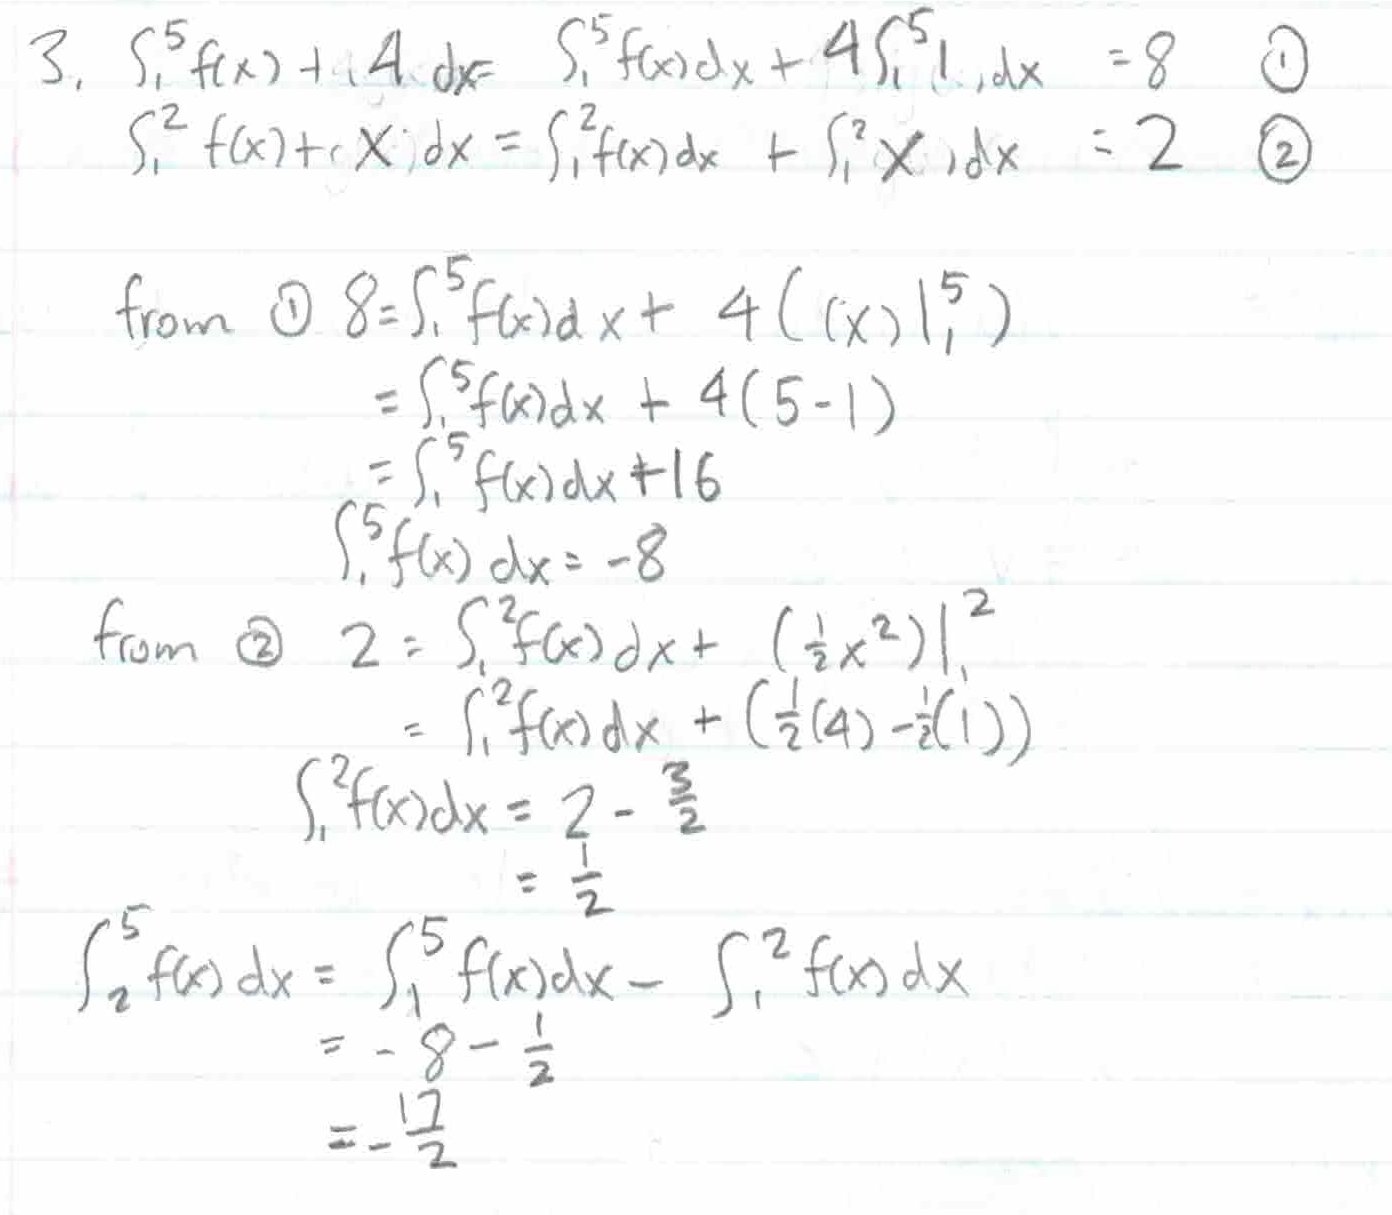 3. ∫₁⁵ f(x) + 4 dx = ∫₁⁵ f(x) dx + 4∫₁⁵ 1 dx = 8 ①
∫₁² f(x) + (X) dx = ∫₁² f(x) dx + ∫₁² X dx = 2 ②
from ① 8 = ∫₁⁵ f(x) dx + 4((x)|₁⁵)
= ∫₁⁵ f(x) dx + 4(5-1)
= ∫₁⁵ f(x) dx + 16
∫₁⁵ f(x) dx = -8
from ② 2 = ∫₁² f(x) dx + (½x²)|₁²
= ∫₁² f(x) dx + (½(4) - ½(1))
∫₁² f(x) dx = 2 - 3/2
= 1/2
∫₂⁵ f(x) dx = ∫₁⁵ f(x) dx - ∫₁² f(x) dx
= -8 - 1/2
= -17/2